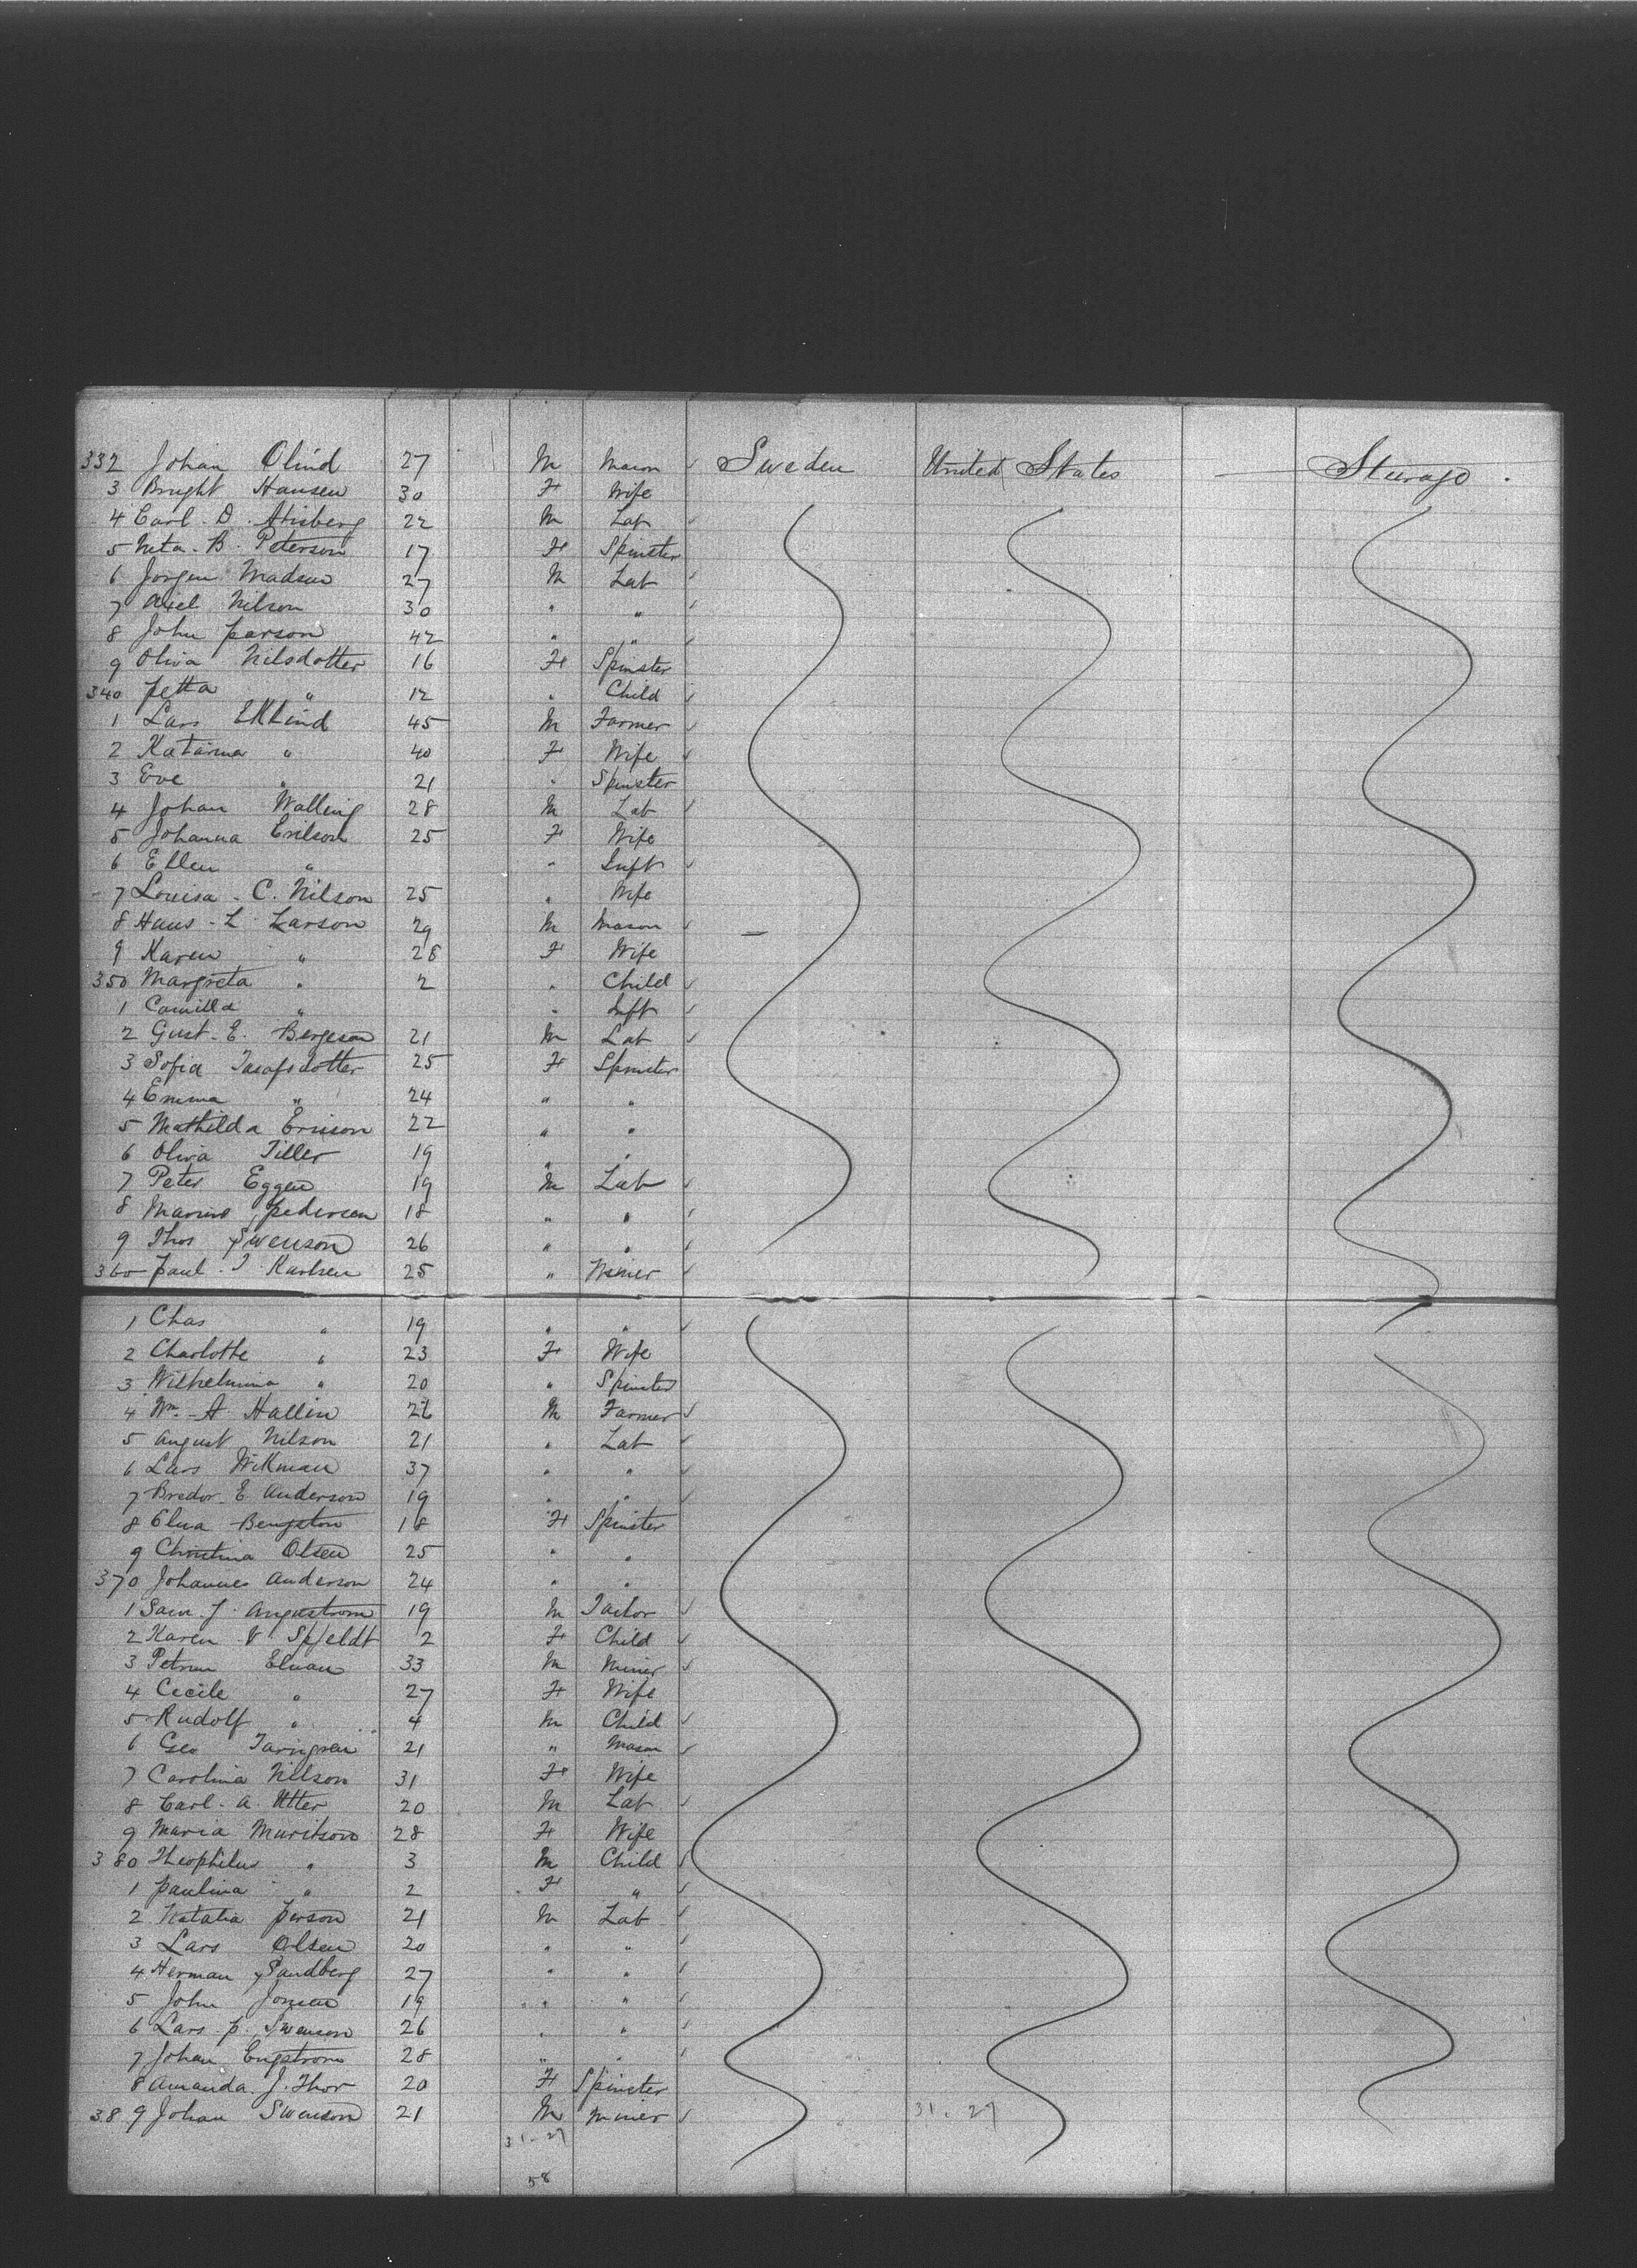 332 Johan Olind 27 M Mason Sweden United States — Steerage
3 Bright Hansen 30 F Wife
4 Carl D. Ahsberg 22 M Lab
5 Neta B. Peterson 17 F Spinster
6 Jorgen Madsen 27 M Lab
7 Axel Nilson 30 " "
8 John Parson 42 " "
9 Oliva Nilsdotter 16 F Spinster
340 Petta " 12 " Child
1 Lars Eklind 45 M Farmer
2 Katarina " 40 F Wife
3 Eve " 21 " Spinster
4 Johan Walling 28 M Lab
5 Johanna Erilson 25 F Wife
6 Ellen " " Inft
7 Louisa C. Nilson 25 " Wife
8 Hans L Larson 29 M Mason
9 Karen " 28 F Wife
350 Margreta " 2 " Child
1 Camilla " " Inft
2 Gust. E. Bergeson 21 M Lab
3 Sofia 25 F Spinster
4 Emma " 24 " "
5 Mathilda Ericson 22 " "
6 Oliva Tiller 19 " "
7 Peter Eggen 19 M Lab
8 Marius Pedersen 18 " "
9 Thos Swenson 26 " "
360 Paul I Karlsen 25 " Miner
1 Chas " 19 " "
2 Charlotte " 23 F Wife
3 Wilhelmina " 20 " Spinster
4 Wm. A Hallin 26 M Farmer
5 August Nilson 21 " Lab
6 Lars Wikman 37 " "
7 Bredor E Anderson 19 " "
8 Elna Bengston 18 F Spinster
9 Christina Olsen 25 " "
370 Johannes Anderson 24 " "
1 Sam J. Angustrom 19 M Tailor
2 Karen V Spjeldt 2 F Child
3 Petrun Elvan 33 M Miner
4 Cecile " 27 F Wife
5 Rudolf " 4 M Child
6 Geo 21 " Mason
7 Carolina Nilson 31 F Wife
8 Carl A. Utter 20 M Lab
9 Maria Muritson 28 F Wife
380 Theophilus " 3 M Child
1 Paulina " 2 F "
2 Natalia Person 21 M Lab
3 Lars Olsen 20 " "
4 Herman Sandberg 27 " "
5 John Jonsen 19 " "
6 Lars P. Swenson 26 " "
7 Johan Engstrom 28 " "
8 Amanda J. Thor 20 F Spinster
389 Johan Swenson 21 M Miner 31. 27
31-27
58